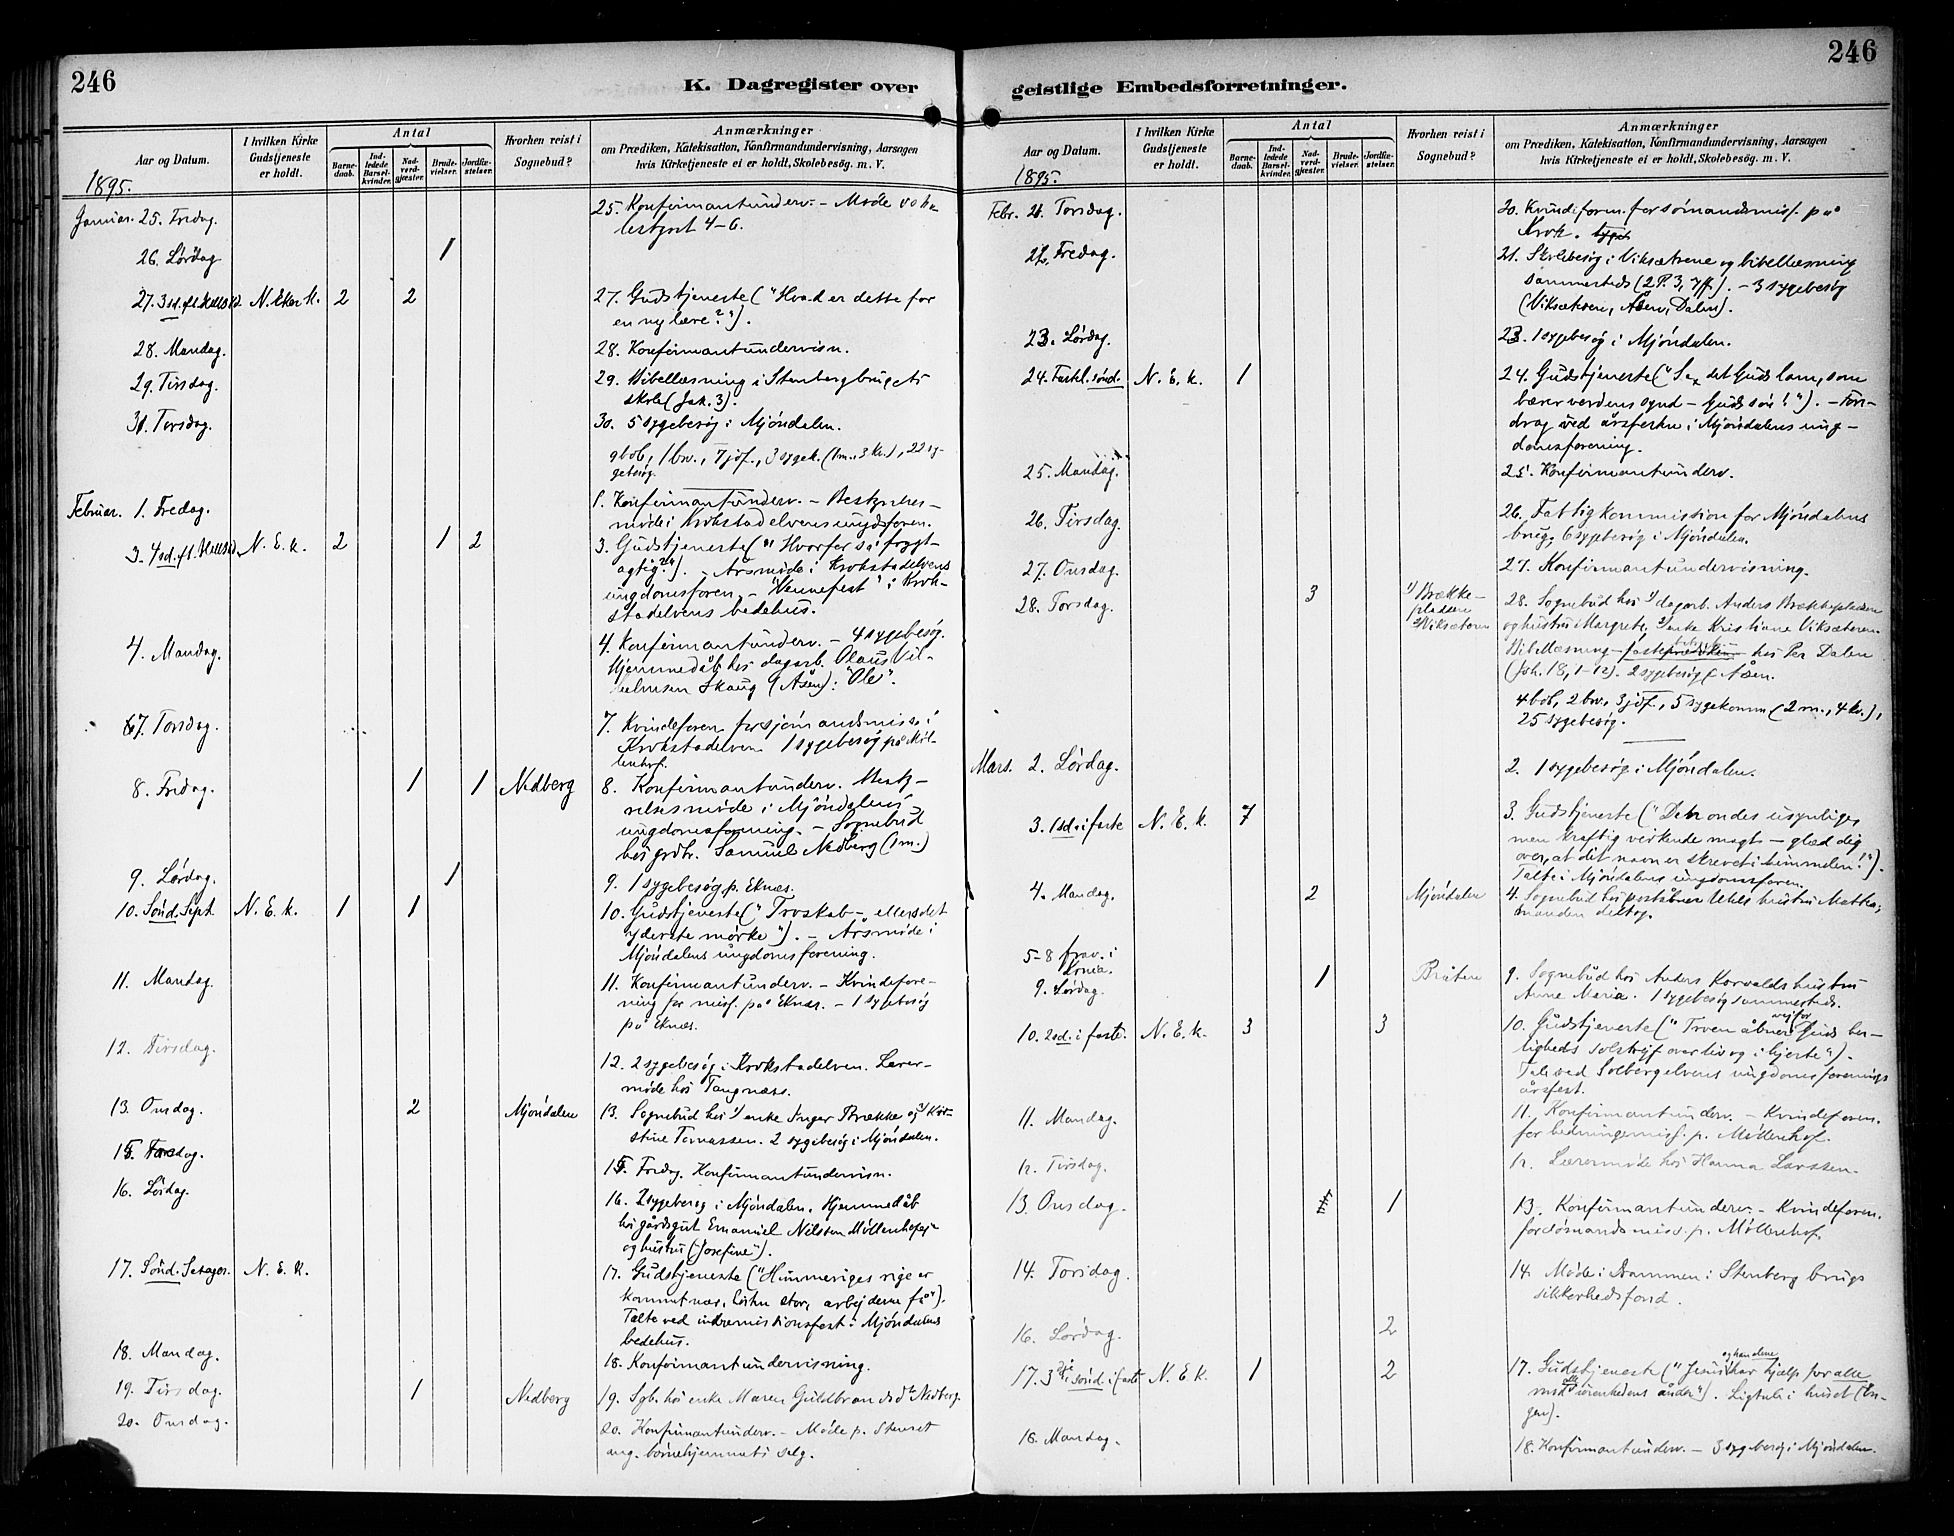 246
K. Dagregister over
Aar og Datum.
I hvilken Kirke Gudstjeneste er holdt.
Antal
Barnedaab.
Indledede Barselkvinder.
Nadverdgjæster.
Brudevielser.
Jordfæstelser.
Hvorhen reist i Sognebud?
Anmærkninger
om Prædiken, Katekisation, Konfirmandundervisning, Aarsagen
hvis Kirketjeneste ei er holdt, Skolebesög. m. V.
1895.
Januar. 25. Fredag. 25. Konfirmantunderv. – Møde
4–6.
26. Lørdag 1
27. 3 sd. N. Eker k. 2 2 27. Gudstjeneste ("Hvad er dette for
en ny lære?").
28. Mandag. 28. Konfirmantundervisn.
29. Tirsdag. 29. Bibellæsning i Stenbergbrugets
skole (Jak. 3).
Torsdag. 30. 5 sygebesøg i Mjöndalen.
9 bdb, 1 brv., 7 jdf., 3 sygek. (1 m., 3 kv.), 22 sy-
gebesøg.
Februar. 1. Fredag. 1. Konfirmantunderv. – Bestyrelses-
møde i Krokstadelvens ungdsforen.
3. 4 sd. N. E. k. 2 1 2 3. Gudstjeneste ("Hvorfor så frygt-
agtig?"). – Årsmøde i Krokstadelvens
ungdomsforen. – "Vennefest" i Krok-
stadelvens bedehus.
4. Mandag. 4. Konfirmantunderv. – 4 sygebesøg.
Hjemmedåb hos dagarb. Olaus Vil-
helmsen Skaug (Åsen): "Ole".
7. Torsdag. 7. Kvindeforen. for sjömandsmiss. i
Krokstadelven 1 sygebesøg på Möl-
lenhof.
8. Fredag. 1 1 Nedberg 8. Konfirmantunderv. Besty-
relsesmøde i Mjöndalens
ungdomsforening. – Sognebud
hos grdbr. Samuel Nedberg (1 m.)
9. Lørdag. 1 9. 1 sygebesøg p. Eknæs.
10. Sönd. Sept. N. E. k. 1 1 10. Gudstjeneste ("Troskab – ellers det
yderste mørke"). – Årsmøde i
Mjöndalens ungdomsforening.
11. Mandag. 11. Konfirmantunderv. – Kvindefore-
ning for miss. på Eknæs. – 1 sygebesøg
på Eknæs.
12. Tirsdag. 12. 2 sygebesøg i Krokstadelven. Lærer-
møde hos Tangnæss.
13. Onsdag. 2 Mjöndalen 13. Sognebud hos 1) enke Inger Brække og 2) Kir-
stine Tomassen. 2 sygebesøg i Mjöndalen.
15. 15. Fredag. Konfirmantundervisn.
16. Lördag. 16. 2 sygebesøg i Mjöndalen. Hjemmedåb
hos gårdsgut Emanuel Nilsen Möllenhofeje
og hustru ("Josefine").
17. Sönd. Sexages. N. E. k. 17. Gudstjeneste ("Himmeriges rige er
kommet nær, hösten stor, arbejderne få").
Talte ved indremissionsfest i Mjöndalens
bedehus.
18. Mandag. 18. Konfirmantundervisning.
19. Tirsdag. 1 Nedberg 19. Sgb. hos enke Maren Guldbrandsdtr Nedberg.
20. Onsdag. 20. Konfirmantunderv. – Møde p.
ang. börnehjemmets salg.
246
geistlige Embedsforretninger.
Aar og Datum.
I hvilken Kirke Gudstjeneste er holdt.
Antal
Barnedaab.
Indledede Barselkvinder.
Nadverdgjæster.
Brudevielser.
Jordfæstelser.
Hvorhen reist i Sognebud?
Anmærkninger
om Prædiken, Katekisation, Konfirmandundervisning, Aarsagen
hvis Kirketjeneste ei er holdt, Skolebesög. m. V.
1895.
Febr. 21. Torsdag. 20. Kvindeforen. for sömandsmiss. på
Krok.
22. Fredag. 21. Skolebesøg i Viksætrene og bibellæsning
sammesteds (2 P. 3, 7 ff.). – 3 sygebesøg
(Viksæteren, Åsen, Dalen).
23. Lördag. 23. 1 sygebesøg i Mjöndalen.
24. Fastel. sönd. N. E. k. 1 24. Gudstjeneste ("Se, det Guds lam, som
bærer verdens synd – Guds sön!"). – Fore-
drag ved årsfesten i Mjöndalens ung-
domsforening.
25. Mandag. 25. Konfirmantunderv.
26. Tirsdag. 26. Fattigkommission for Mjöndalens
brug, 6 sygebesøg i Mjöndalen.
27. Onsdag. 27. Konfirmantundervisning.
28. Torsdag. 3 1) Brække-
pladsen
2) Viksæteren 28. Sognebud hos 1) dagarb. Anders Brækkepladsen
og hustru Margrete, 2) enke Kristiane Viksæteren
Bibellæsning hos Per Dalen
(Joh. 18, 1–12). 2 sygebesøg i Åsen.
4 bdb, 2 brv., 3 jdf., 5 sygekomm (2 m., 4 kv.),
25 sygebesøg.
Mars. 2. Lördag. 2. 1 sygebesøg i Mjöndalen.
3. 1 sd. i faste N. E. k. 7 3. Gudstjeneste ("Den ondes usynlige,
men kraftig virkende magt – glæd dig
over, at dit navn er skrevet i himmelen!").
Talte i Mjöndalens ungdomsforen.
4. Mandag. 2 Mjöndalen 4. Sognebud hos postaabner hustru
manden deltog.
5–8 frav. i
9. Lördag. 1 Bråten 9. Sognebud hos Anders Korvalds hustru
Anne Maria. 1 sygebesøg sammesteds.
10. 2 sd. i faste. N. E. k. 3 3 10. Gudstjeneste ("Troen åbner vejfor Guds her-
ligheds solstrejf over liv og i hjerte").
Tale ved Solbergelvens ungdomsforenings
årsfest.
11. Mandag. 11. Konfirmantunderv. – Kvindeforen.
for hedningemiss. p. Möllenhof.
12. Tirsdag. 12. Lærermøde hos Hanna Larssen.
13. Onsdag. 1 13. Konfirmantunderv. – Kvindeforen.
for sömandsmiss. p. Möllenhof.
14. Torsdag. 14. Møde i Drammen i Stenberg brugs
sikkerhedsfond.
16. Lördag. 2
17. 3dje sönd. i faste N. E. k. 1 2 17. Gudstjeneste ("Jesus og han alene har hjælp for alle
mod alle urenhedens ånder"). Ligtale i huset (En-
gen).
18. Mandag. 18. Konfirmantunderv. – 3 sygebesøg i Mjöndalen.